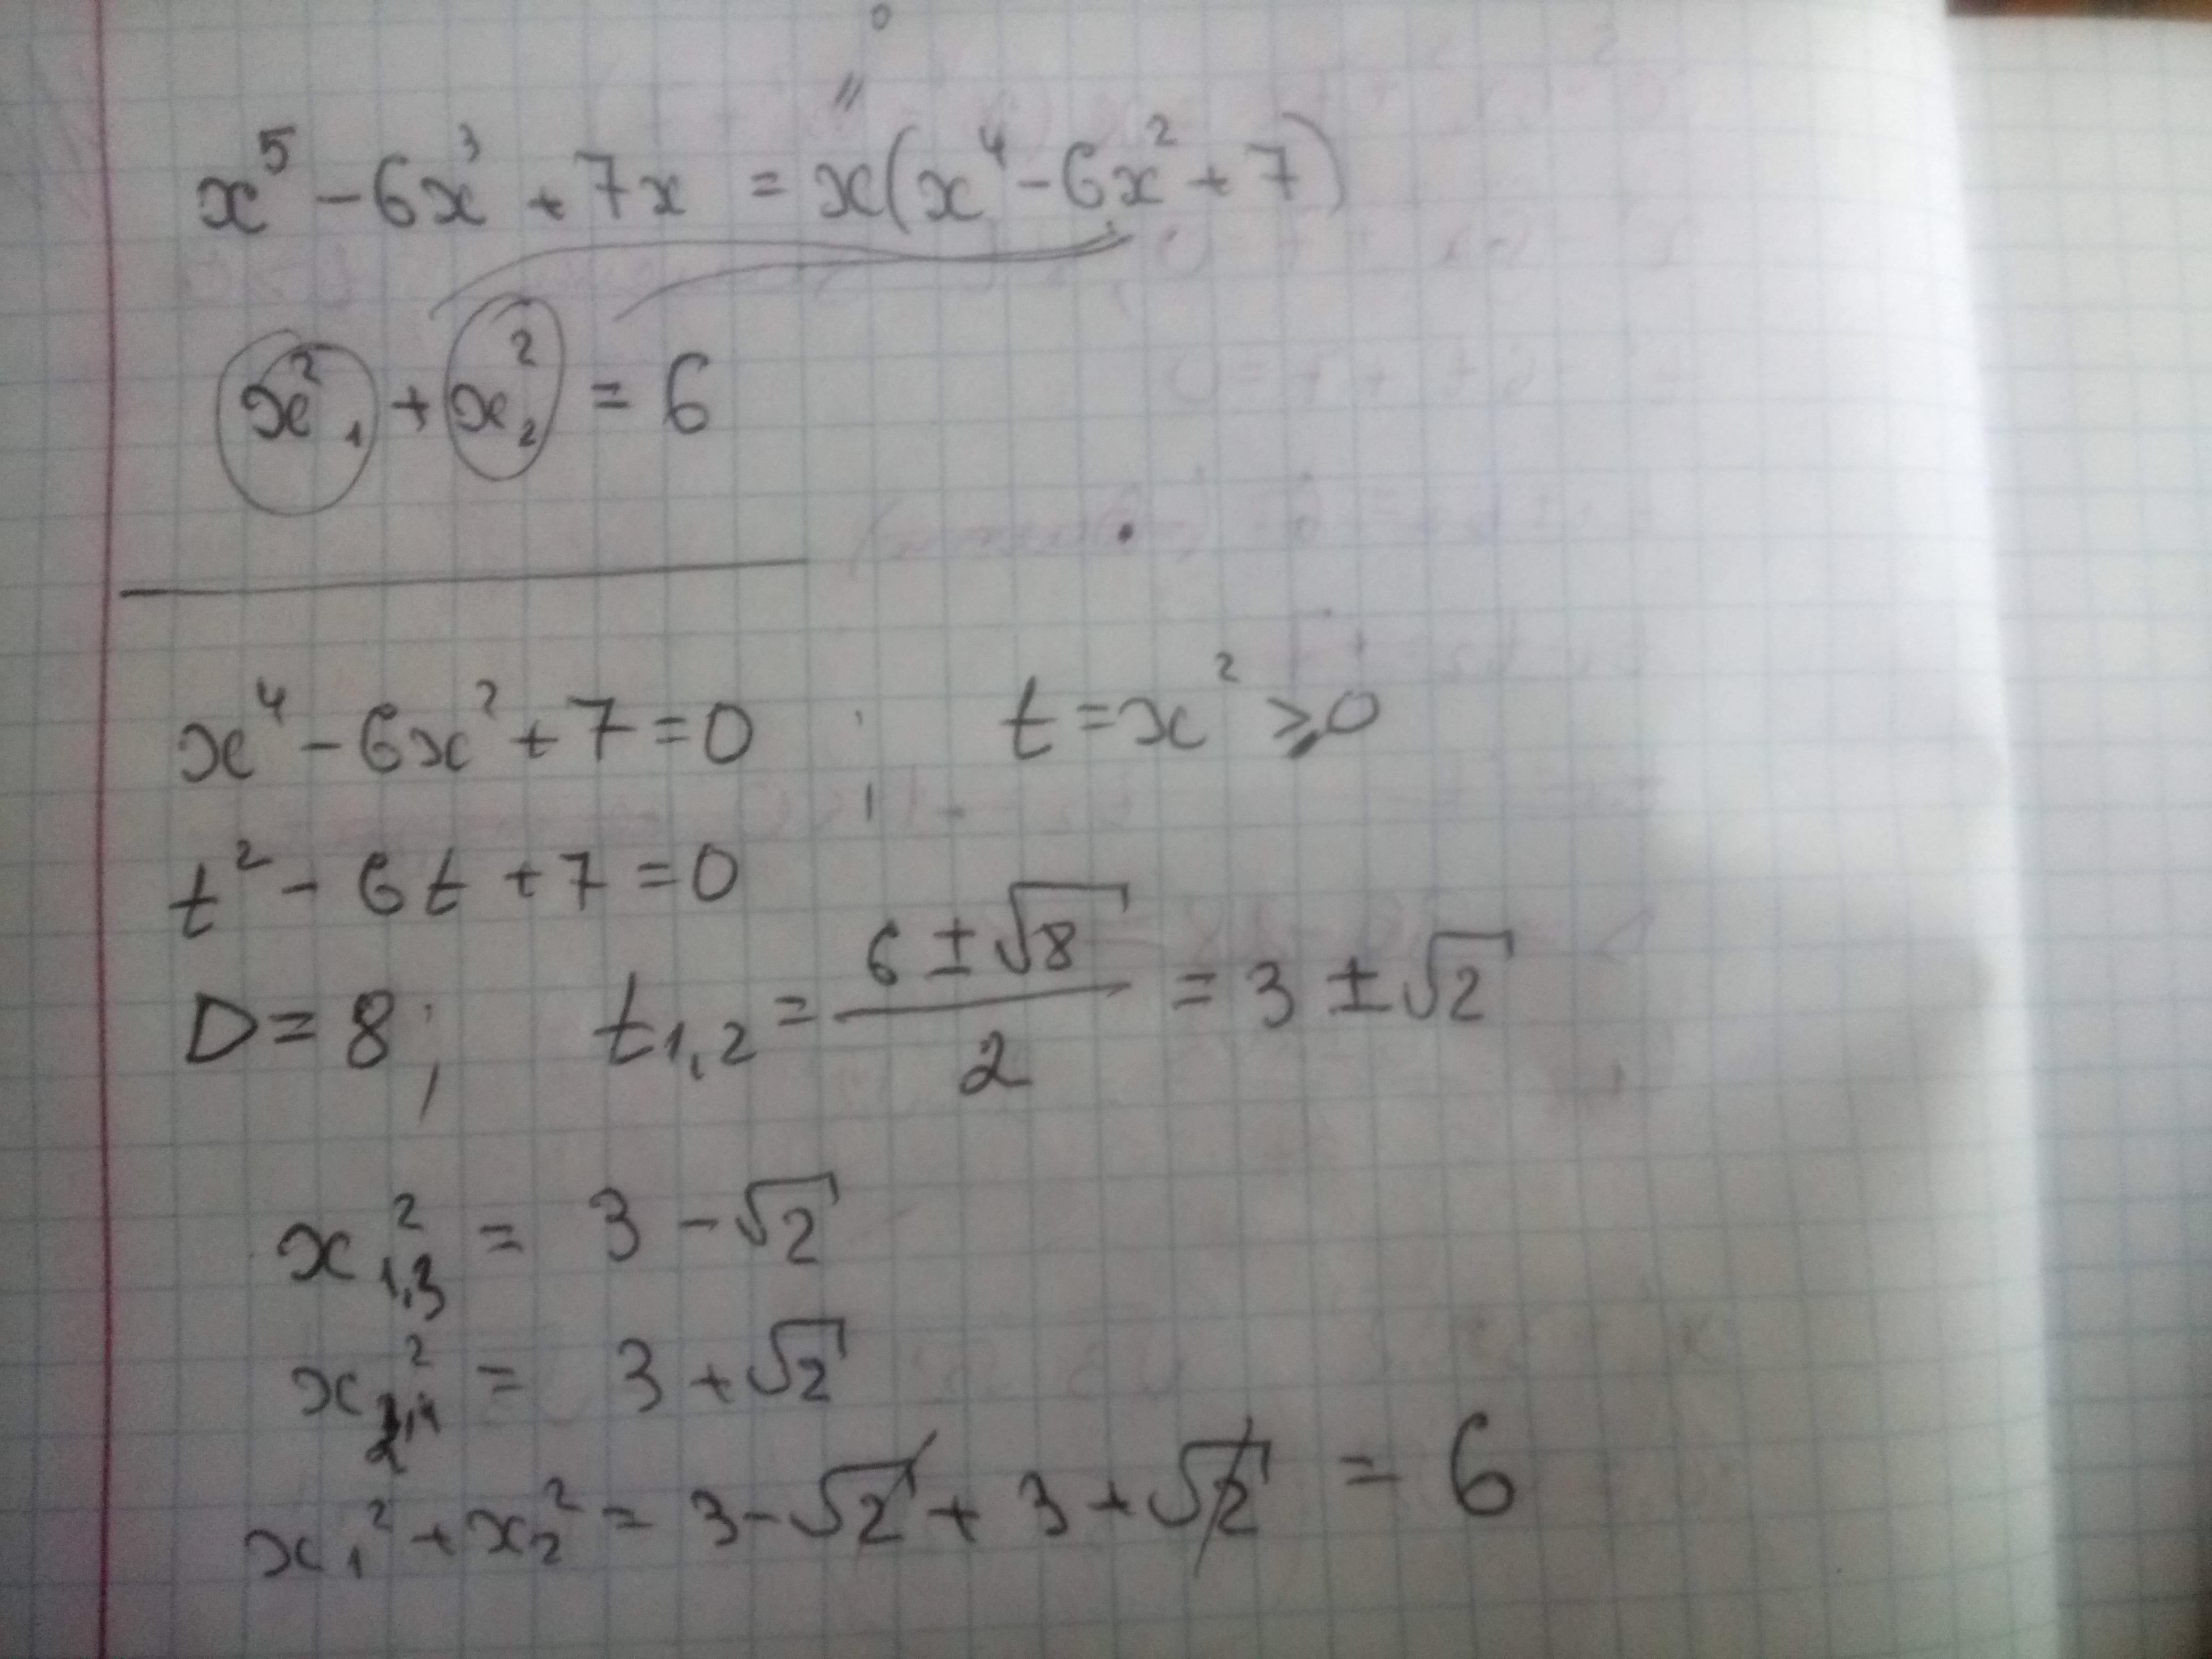 0
=
x⁵ - 6x³ + 7x = x(x⁴ - 6x² + 7)
x₁² + x₂² = 6
x⁴ - 6x² + 7 = 0 ; t = x² ⩾ 0
t² - 6t + 7 = 0
D = 8 ; t₁,₂ = (6 ± √8)/2 = 3 ± √2
x₁,₃² = 3 - √2
x₂,₄² = 3 + √2
x₁² + x₂² = 3 - √2 + 3 + √2 = 6